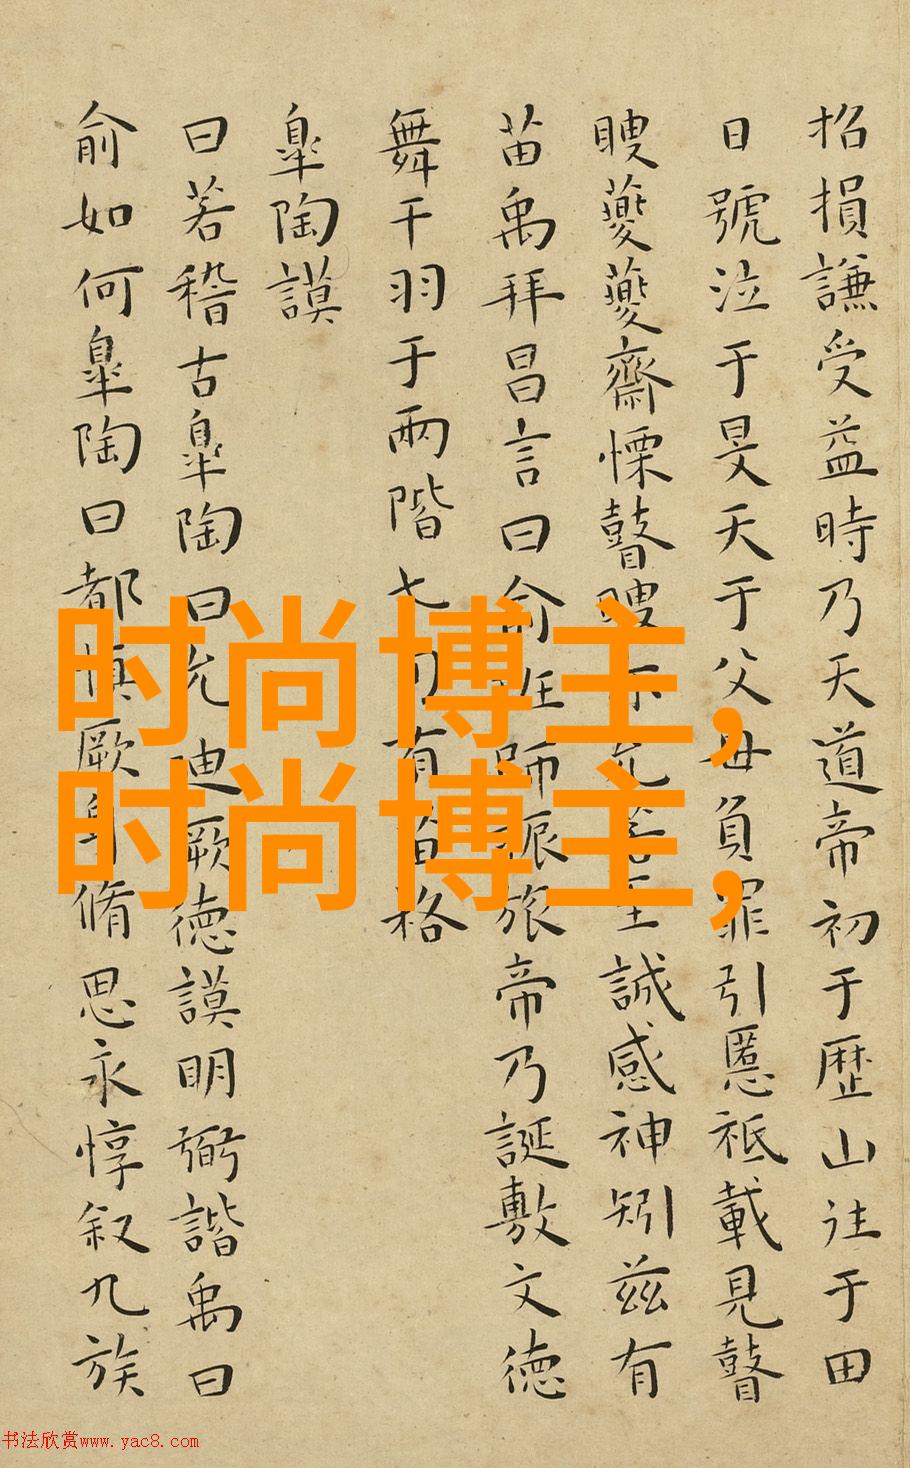 招損謙受益時乃天道帝初于歴山往于田
日號泣于旻天于父母負罪引慝祗載見瞽
瞍夔夔齋慄瞽瞍亦允若至誠感神矧兹有
苗禹拜昌言曰俞班師振旅帝乃誕敷文德
舞干羽于兩階七旬有苗格
皐陶謨
曰若稽古皐陶曰允迪厥德謨明弼諧禹曰
俞如何皐陶曰都慎厥身脩思永惇叙九族
时尚博主,
时尚博主,
书法欣赏www.yac8.com